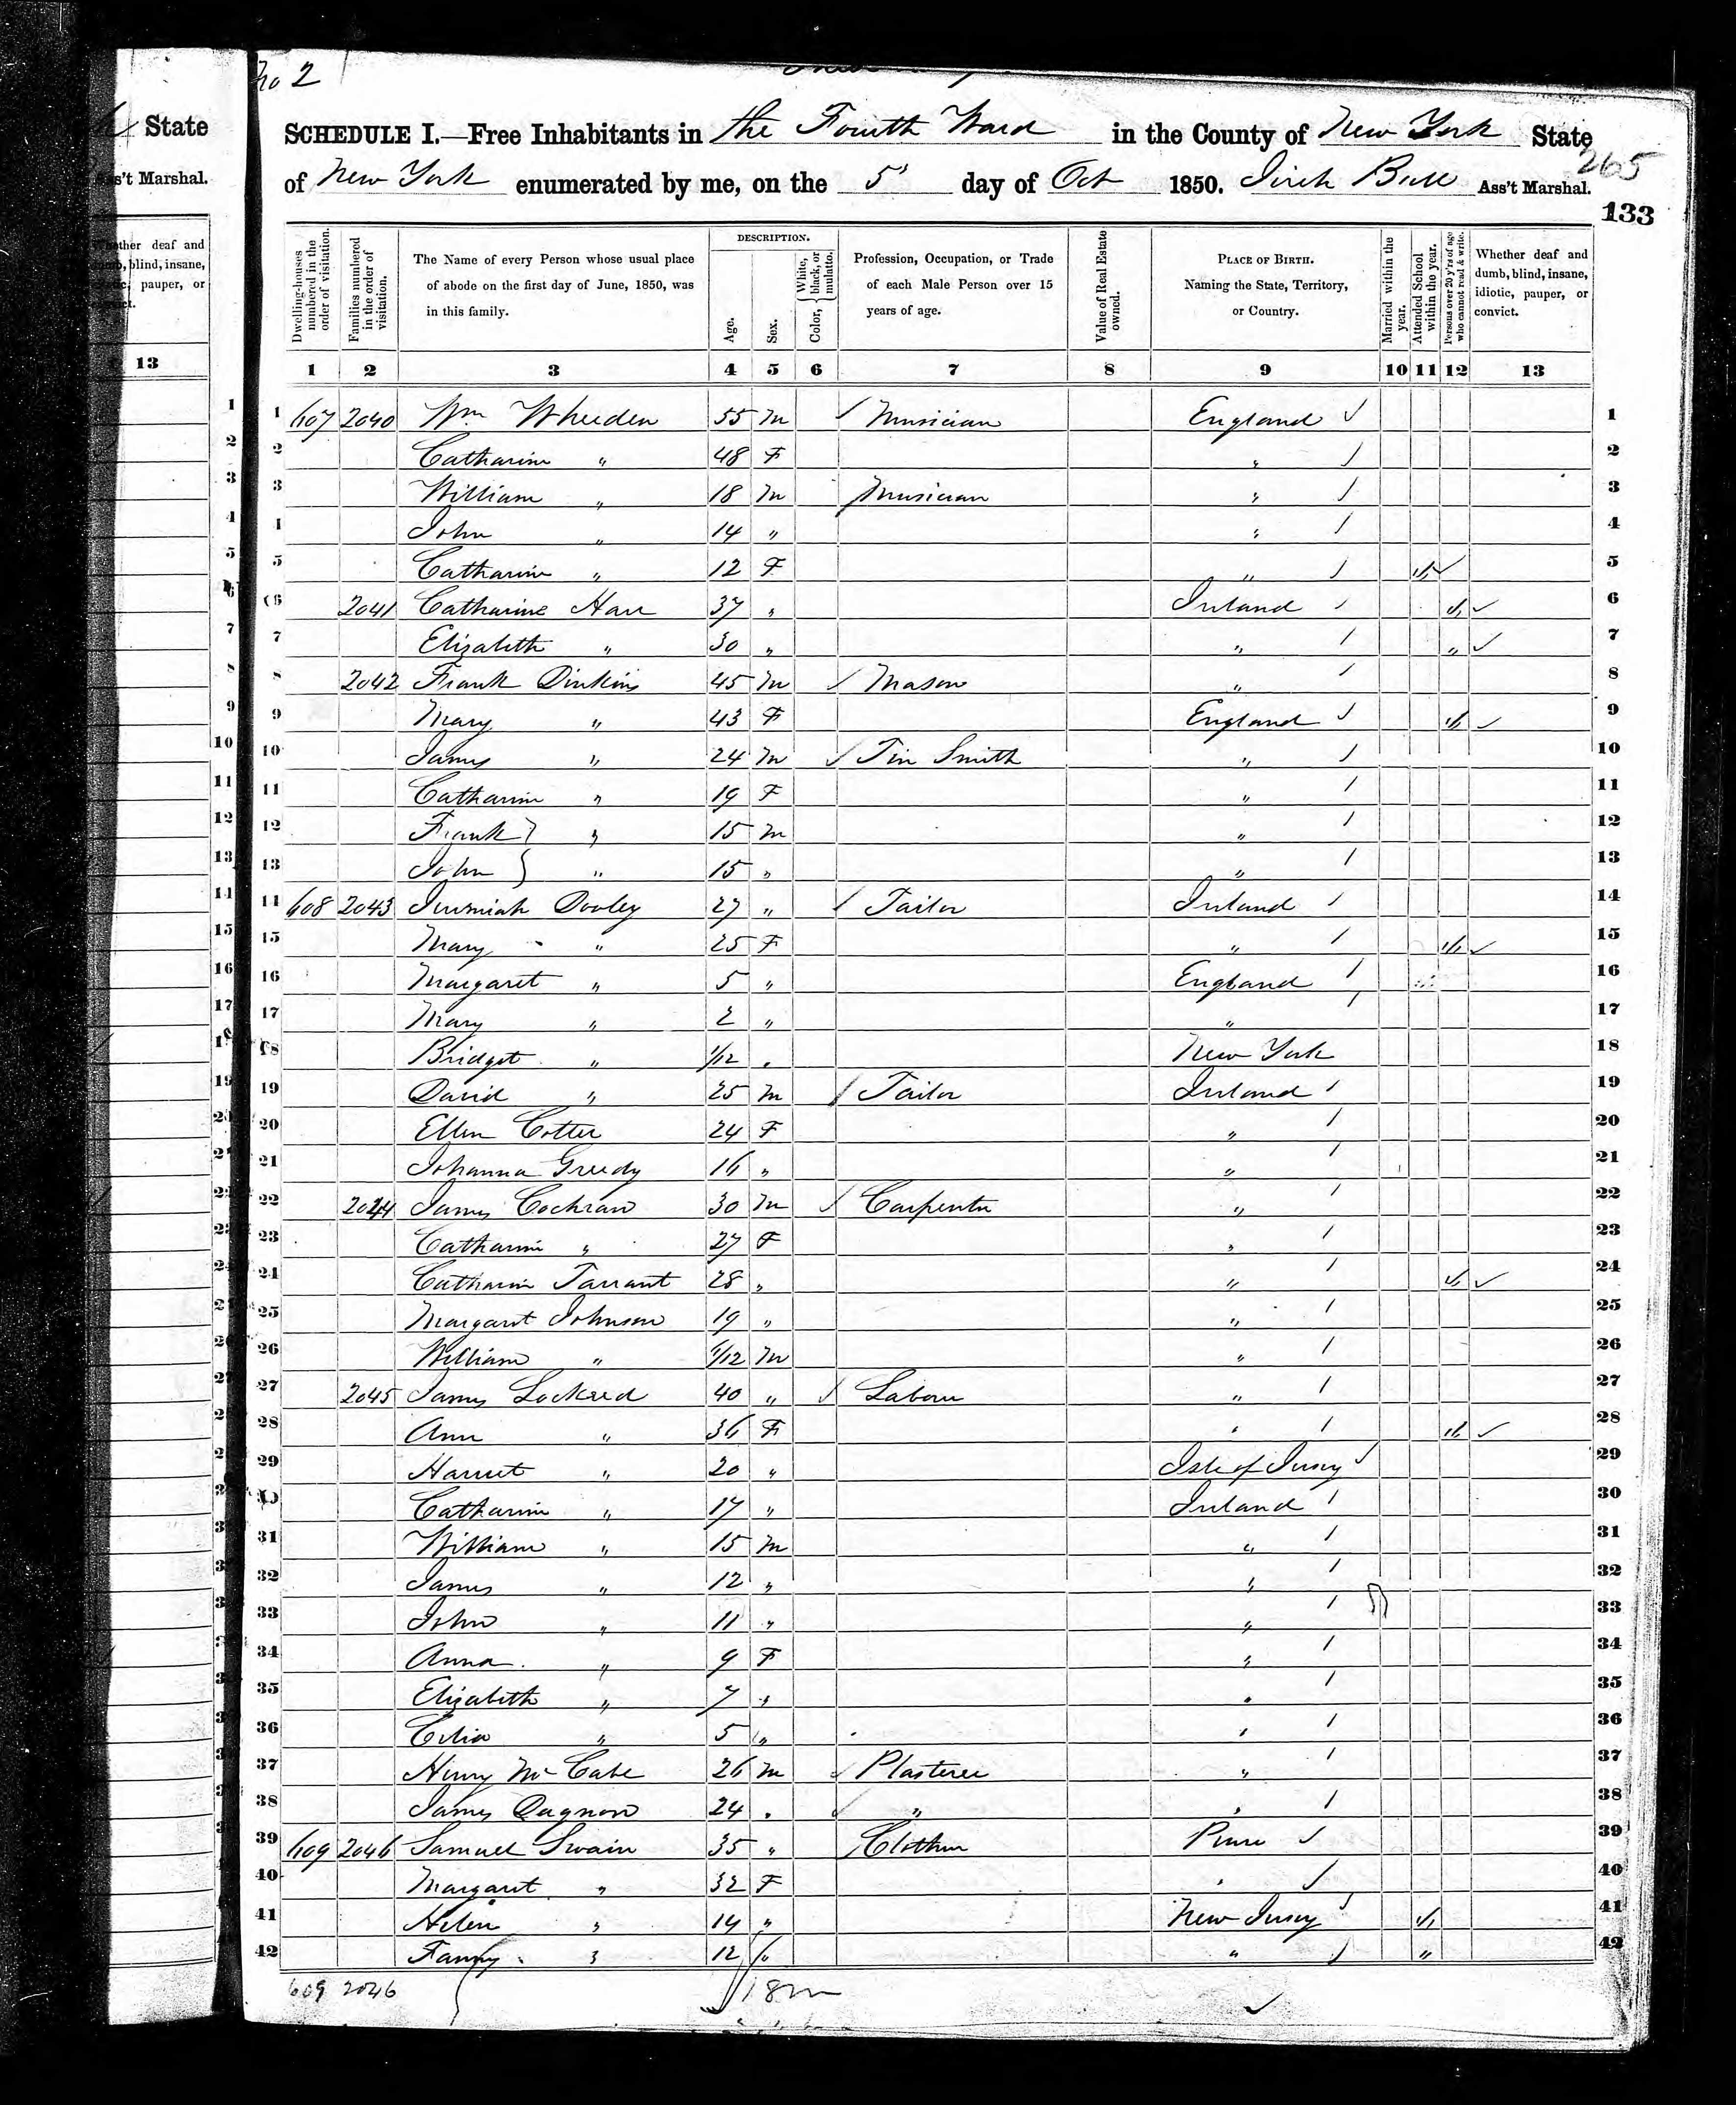 No 2
State
Ass't Marshal.
Whether deaf and
dumb, blind, insane,
idiotic, pauper, or
convict.
13
SCHEDULE I.—Free Inhabitants in the Fourth Ward in the County of New York State
265
of New York enumerated by me, on the 5' day of Oct 1850. Ass't Marshal.
133
Dwelling-houses numbered in the order of visitation.
Families numbered in the order of visitation.
The Name of every Person whose usual place of abode on the first day of June, 1850, was in this family.
DESCRIPTION.
Age.
Sex.
Color, { White, black, or mulatto.
Profession, Occupation, or Trade of each Male Person over 15 years of age.
Value of Real Estate owned.
PLACE OF BIRTH. Naming the State, Territory, or Country.
Married within the year.
Attended School within the year.
Persons over 20 y'rs of age who cannot read & write.
Whether deaf and dumb, blind, insane, idiotic, pauper, or convict.
1 2 3 4 5 6 7 8 9 10 11 12 13
1 607 2040 Wm Wheeden 55 M Musician England 1
2 Catharine " 48 F " 2
3 William " 18 M Musician " 3
4 John " 14 " " 4
5 Catharine " 12 F " 5
6 2041 Catharine Harr 37 " Ireland 6
7 Elizabeth " 30 " " " 7
8 2042 Frank Dinkins 45 M Mason " 8
9 Mary " 43 F England 9
10 James " 24 M Tin Smith " 10
11 Catharine " 19 F " 11
12 Frank } " 15 M " 12
13 John } " 15 " " 13
14 608 2043 Jeremiah Dooley 27 " Tailor Ireland 14
15 Mary " 25 F " 15
16 Margaret " 5 " England 16
17 Mary " 2 " " 17
18 Bridget " 1/12 " New York 18
19 David " 25 M Tailor Ireland 19
20 Ellen Cotter 24 F " 20
21 Johanna Greedy 16 " " 21
22 2044 James Cochran 30 M Carpenter " 22
23 Catharine " 27 F " 23
24 Catharin Tarrant 28 " " 24
25 Margaret Johnson 19 " " 25
26 William " /12 M " 26
27 2045 James Lockerd 40 " Labour " 27
28 Ann " 36 F " 28
29 Harriet " 20 " Isle of Jersey 29
30 Catharine " 17 " Ireland 30
31 William " 15 M " 31
32 James " 12 " " 32
33 John " 11 " " 33
34 Anna " 9 F " 34
35 Elizabeth " 7 " " 35
36 Celia " 5 " " 36
37 Henry McCabe 26 M Plasterer " 37
38 James Dagnon 24 " " " 38
39 609 2046 Samuel Swain 35 " Clothier 39
40 Margaret " 32 F " 40
41 Helen " 14 " New Jersey 41
42 Fanny " 12 " " " 42
609 2046
18m